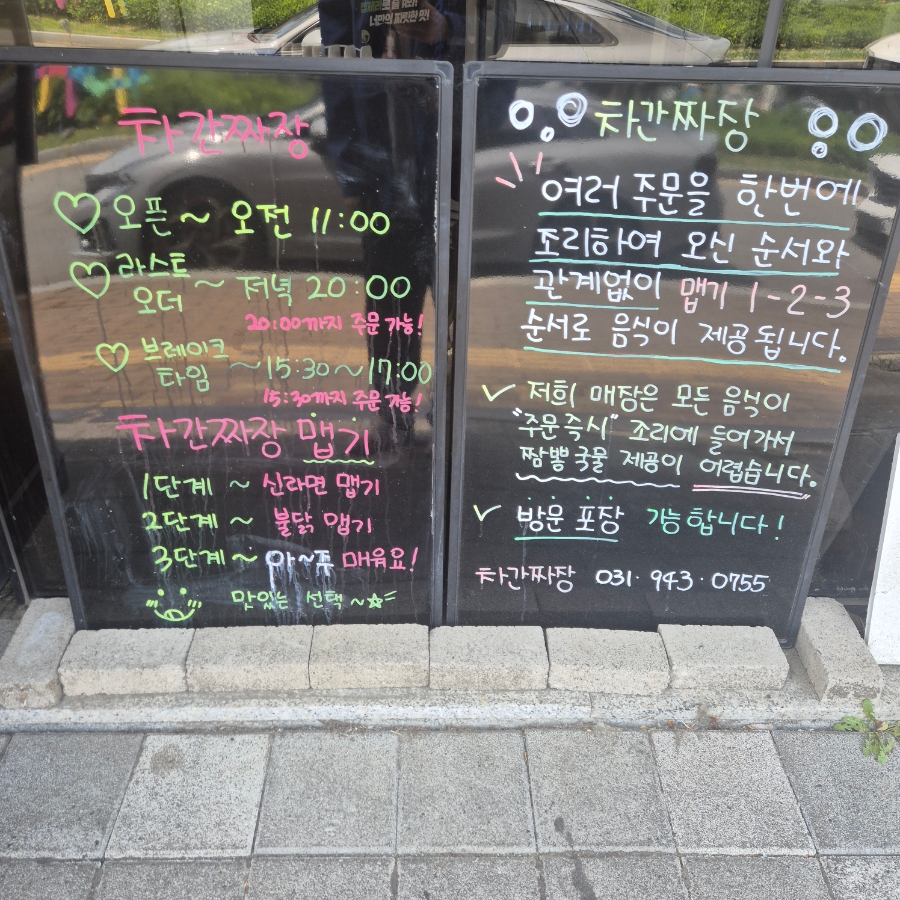 너만의 짜릿한 맛!
차간짜장
오픈 ~ 오전 11:00
라스트 오더 ~ 저녁 20:00
20:00까지 주문 가능!
브레이크 타임 ~ 15:30~17:00
15:30까지 주문 가능!
차간짜장 맵기
1단계 ~ 신라면 맵기
2단계 ~ 불닭 맵기
3단계 ~ 아~주 매워요!
맛있는 선택~
차간짜장
여러 주문을 한번에
조리하여 오신 순서와
관계없이 맵기 1-2-3
순서로 음식이 제공됩니다.
저희 매장은 모든 음식이
"주문즉시" 조리에 들어가서
짬뽕국물 제공이 어렵습니다.
방문 포장 가능합니다!
차간짜장 031·943·0755